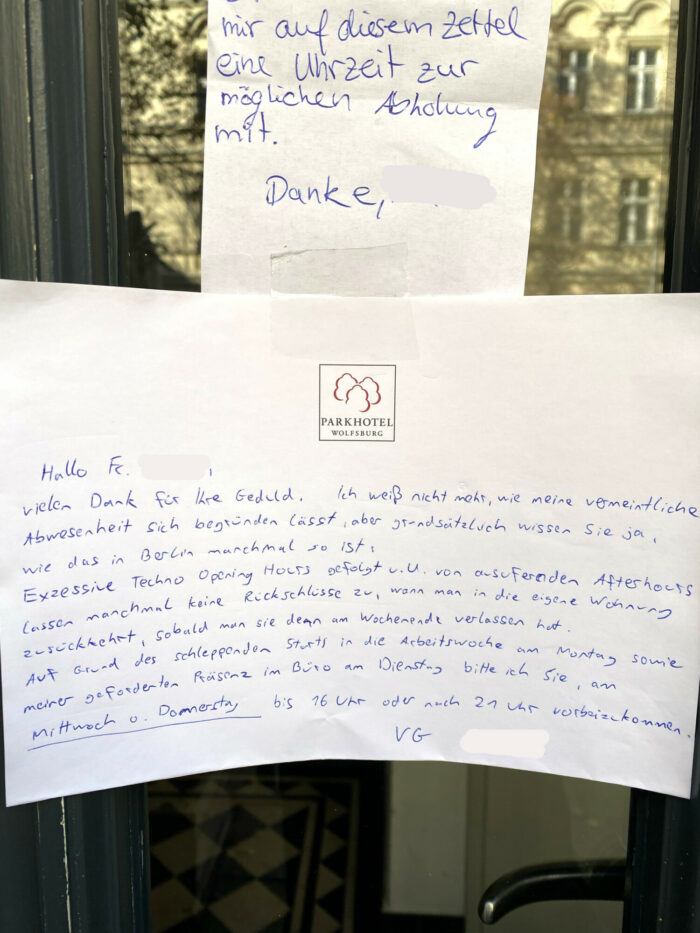 mir auf diesem Zettel
eine Uhrzeit zur
möglichen Abholung
mit.
Danke,
PARKHOTEL
WOLFSBURG
Hallo Fr. ,
vielen Dank für Ihre Geduld. Ich weiß nicht mehr, wie meine vermeintliche
Abwesenheit sich begründen lässt, aber grundsätzlich wissen Sie ja,
wie das in Berlin manchmal so ist:
Exzessive Techno Opening Hours gefolgt u.U. von ausufernden Afterhours
lassen manchmal keine Rückschlüsse zu, wann man in die eigene Wohnung
zurückkehrt, sobald man sie denn am Wochenende verlassen hat.
Auf Grund des schleppenden Starts in die Arbeitswoche am Montag sowie
meiner geforderten Präsenz im Büro am Dienstag bitte ich Sie, am
Mittwoch o. Donnerstag bis 16 Uhr oder nach 21 Uhr vorbeizukommen.
VG